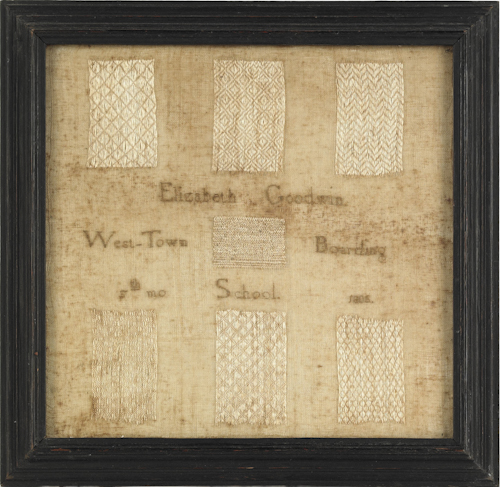 Elizabeth Goodwin.
West-Town Boarding
5th mo School. 1805.